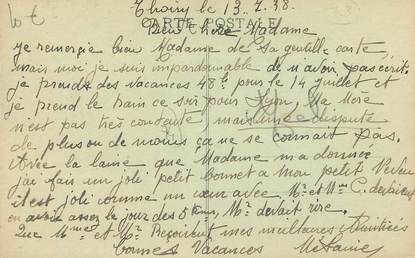 10 €
Thoiry le 13.7.38.
CARTE POSTALE
Bien chère Madame
je remercie bien Madame de sa gentille carte
mais moi je suis impardonnable de n'avoir pas écrit.
je prends des vacances 48h pour le 14 juillet et
je prend le train ce soir pour Lyon, Ma Mère
n'est pas très contente mais une dispute
de plus ou de moins ça ne se connait pas.
Avec la laine que Madame m'a donnée
j'ai fait un joli petit bonnet a mon petit Neveu
il est joli comme un cœur avec. Mr et Mme C. devaient
en avoir assez le jour des 5 Mr devait rire.
Que Mme et Mr Reçoivent mes meilleures Amitiés
bonnes Vacances